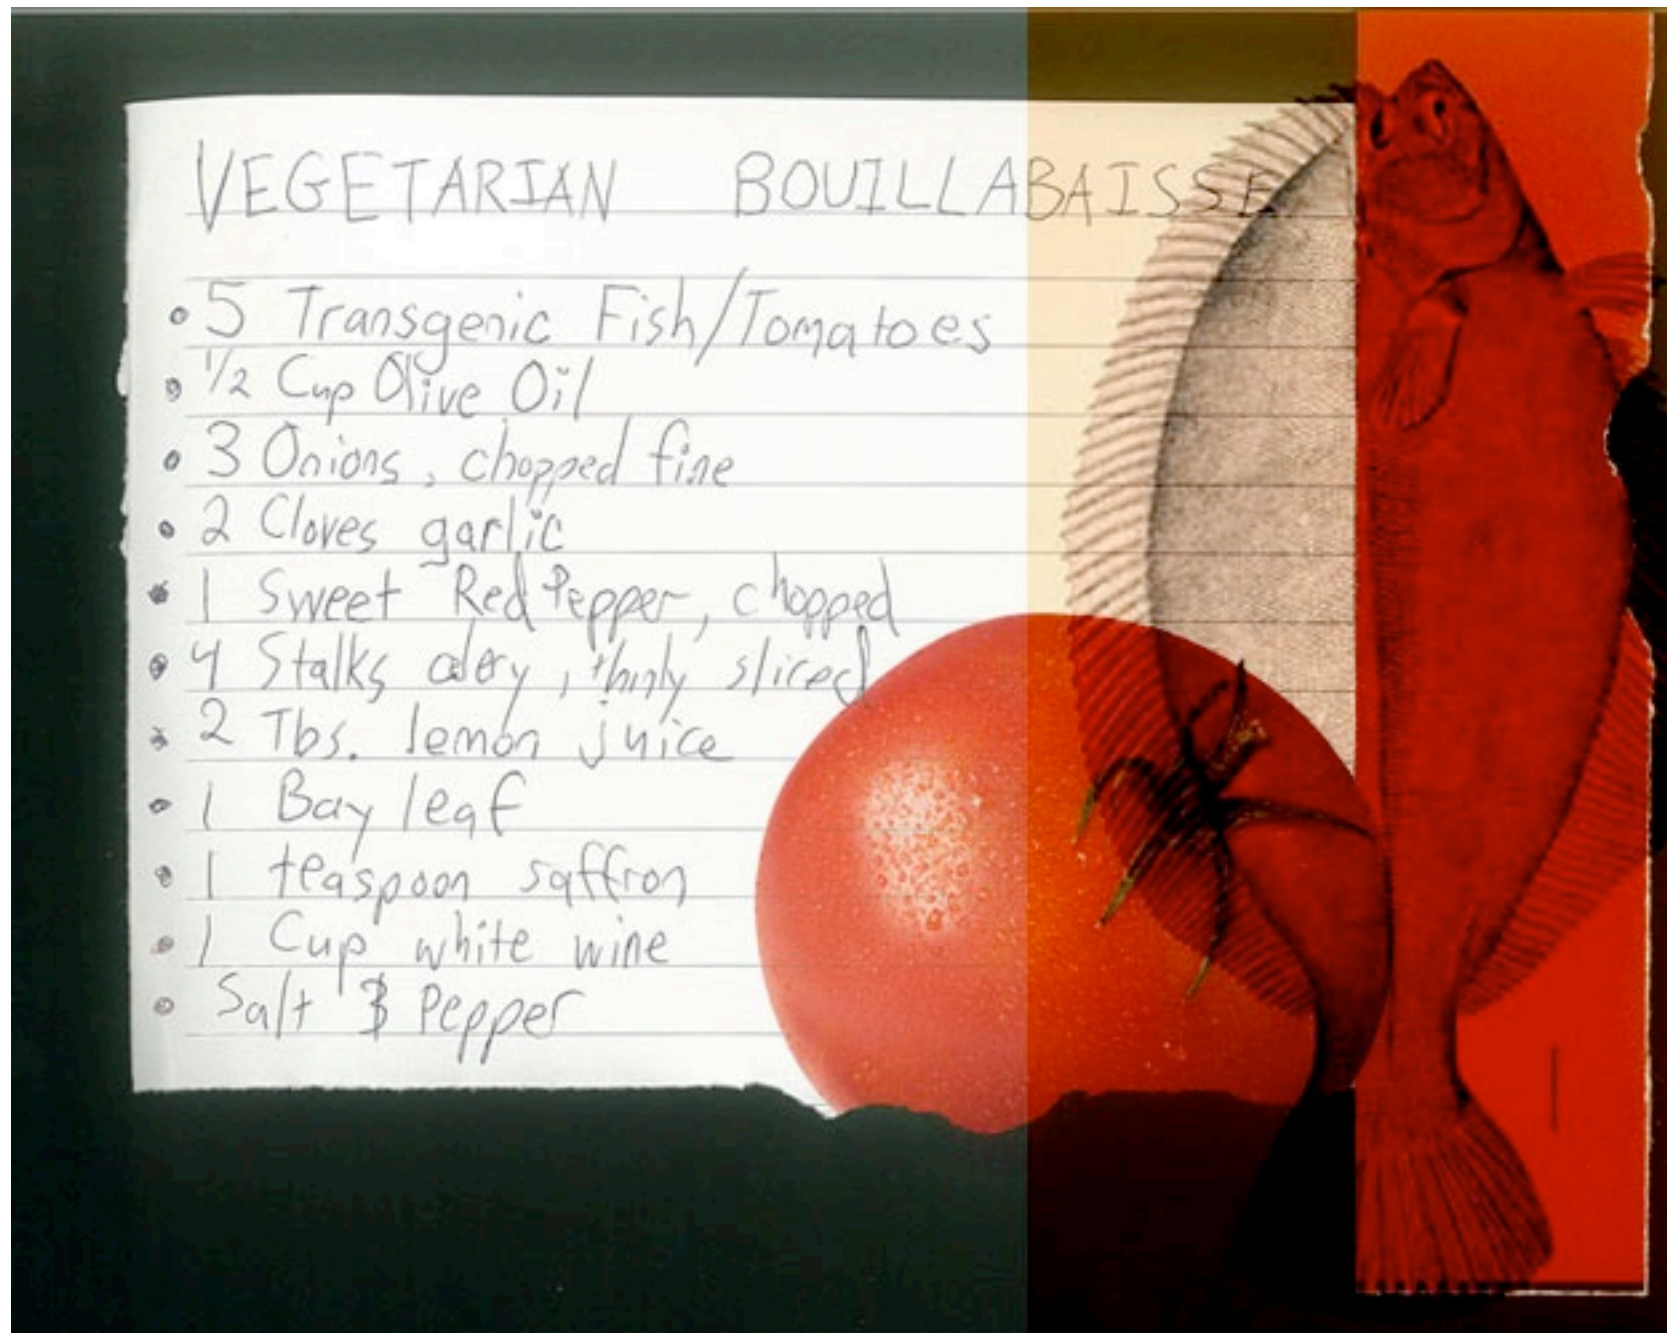 VEGETARIAN BOUILLABAISSE
5 Transgenic Fish/Tomatoes
1/2 Cup Olive Oil
3 Onions, chopped fine
2 Cloves garlic
1 Sweet Red Pepper, chopped
4 Stalks celery, thinly sliced
2 Tbs. lemon juice
1 Bay leaf
1 teaspoon saffron
1 Cup white wine
Salt & Pepper